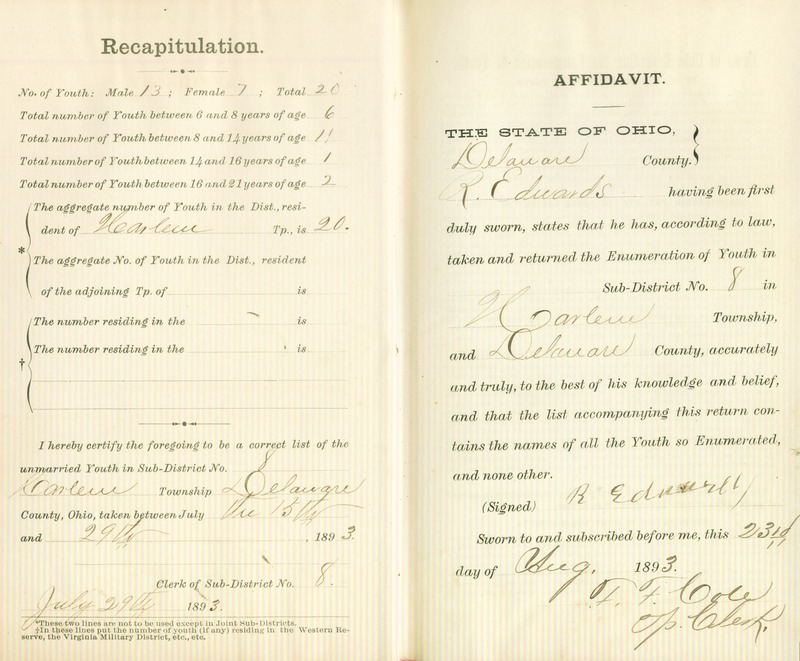 Recapitulation.
No. of Youth: Male 13; Female 7; Total 20
Total number of Youth between 6 and 8 years of age 6
Total number of Youth between 8 and 14 years of age 11
Total number of Youth between 14 and 16 years of age 1
Total number of Youth between 16 and 21 years of age 2
The aggregate number of Youth in the Dist., resi-
dent of Harlem Tp., is 20.
*
The aggregate No. of Youth in the Dist., resident
of the adjoining Tp. of is
The number residing in the is
The number residing in the is
†
I hereby certify the foregoing to be a correct list of the
unmarried Youth in Sub-District No. 8
Harlem Township Delaware
County, Ohio, taken between July the 15th
and 29th, 1893.
Clerk of Sub-District No. 8.
July 29th 1893.
*These two lines are not to be used except in Joint Sub-Districts.
†In these lines put the number of youth (if any) residing in the Western Re-
serve, the Virginia Military District, etc., etc.
AFFIDAVIT.
THE STATE OF OHIO,
Delaware County.
R. Edwards having been first
duly sworn, states that he has, according to law,
taken and returned the Enumeration of Youth in
Sub-District No. 8 in
Harlem Township,
and Delaware County, accurately
and truly, to the best of his knowledge and belief,
and that the list accompanying this return con-
tains the names of all the Youth so Enumerated,
and none other.
(Signed) R Edwards
Sworn to and subscribed before me, this 23rd
day of Aug. 1893.
F. F. Cole
Tp. Clerk.